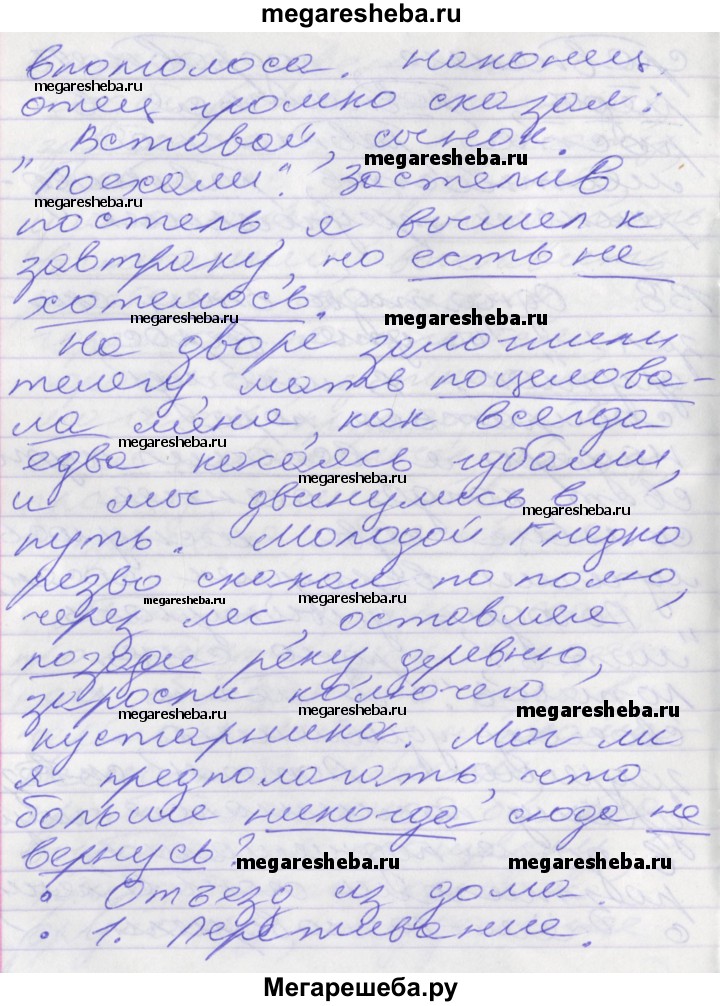 megaresheba.ru
вполголоса. Наконец,
megaresheba.ru
отец громко сказал:
Вставай, сынок.
megaresheba.ru
"Поехали". Застелив
megaresheba.ru
постель, я вышел к
завтраку, но есть не
хотелось.
megaresheba.ru megaresheba.ru
На дворе заложили
телегу, мать поцелова-
ла меня, как всегда
megaresheba.ru
едва касаясь губами,
megaresheba.ru
и мы двинулись в
megaresheba.ru
путь. Молодой Гнедко
резво скакал по полю,
megaresheba.ru
через лес, оставляя
позади реку, деревню,
заросли колючего
megaresheba.ru megaresheba.ru
кустарника. Мог ли
я предполагать, что
больше никогда сюда не
вернусь?
megaresheba.ru megaresheba.ru
• Отъезд из дома.
• 1. Переживание.
Мегарешеба.ру